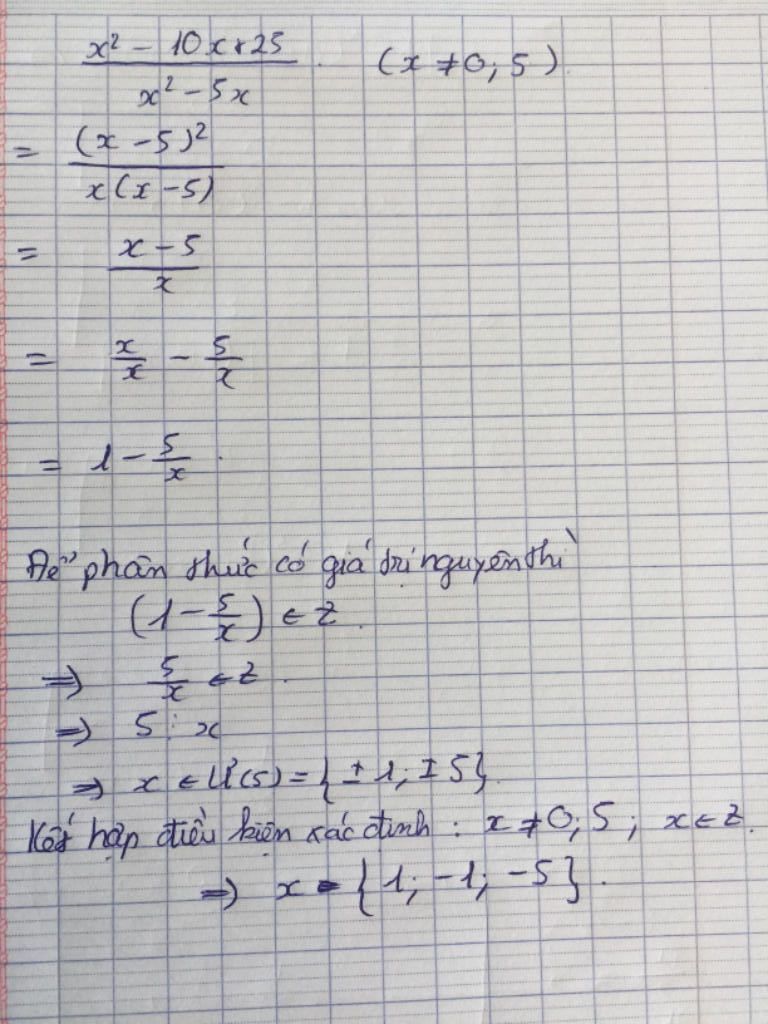 x² - 10x + 25 / x² - 5x (x ≠ 0; 5)
= (x - 5)² / x(x - 5)
= x - 5 / x
= x/x - 5/x
= 1 - 5/x.
Để phân thức có giá trị nguyên thì
(1 - 5/x) ∈ Z.
⇒ 5/x ∈ Z.
⇒ 5 ⋮ x
⇒ x ∈ Ư(5) = {±1; ±5}
Kết hợp điều kiện xác định : x ≠ 0; 5 ; x ∈ Z.
⇒ x = {1; -1; -5}.